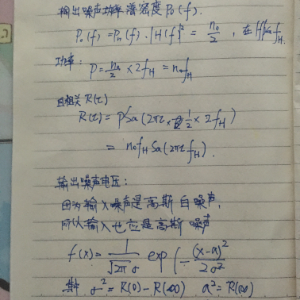 输出噪声功率谱密度 P₀(f).
P₀(f) = Pₙ(f)·|H(f)|² = n₀/2 , 在|f|≤f_H
功率: P = n₀/2 × 2f_H = n₀f_H
自相关 R(τ)
R(τ) = P Sa(2πτ × 1/2 × 2f_H)
= n₀f_H Sa(2πτ f_H).
输出噪声电压:
因为输入噪声是高斯白噪声,
所以输入也应是高斯噪声
f(x) = 1/(√2π σ) exp(-(x-a)²/2σ²)
σ² = R(0) - R(∞) a² = R(∞)